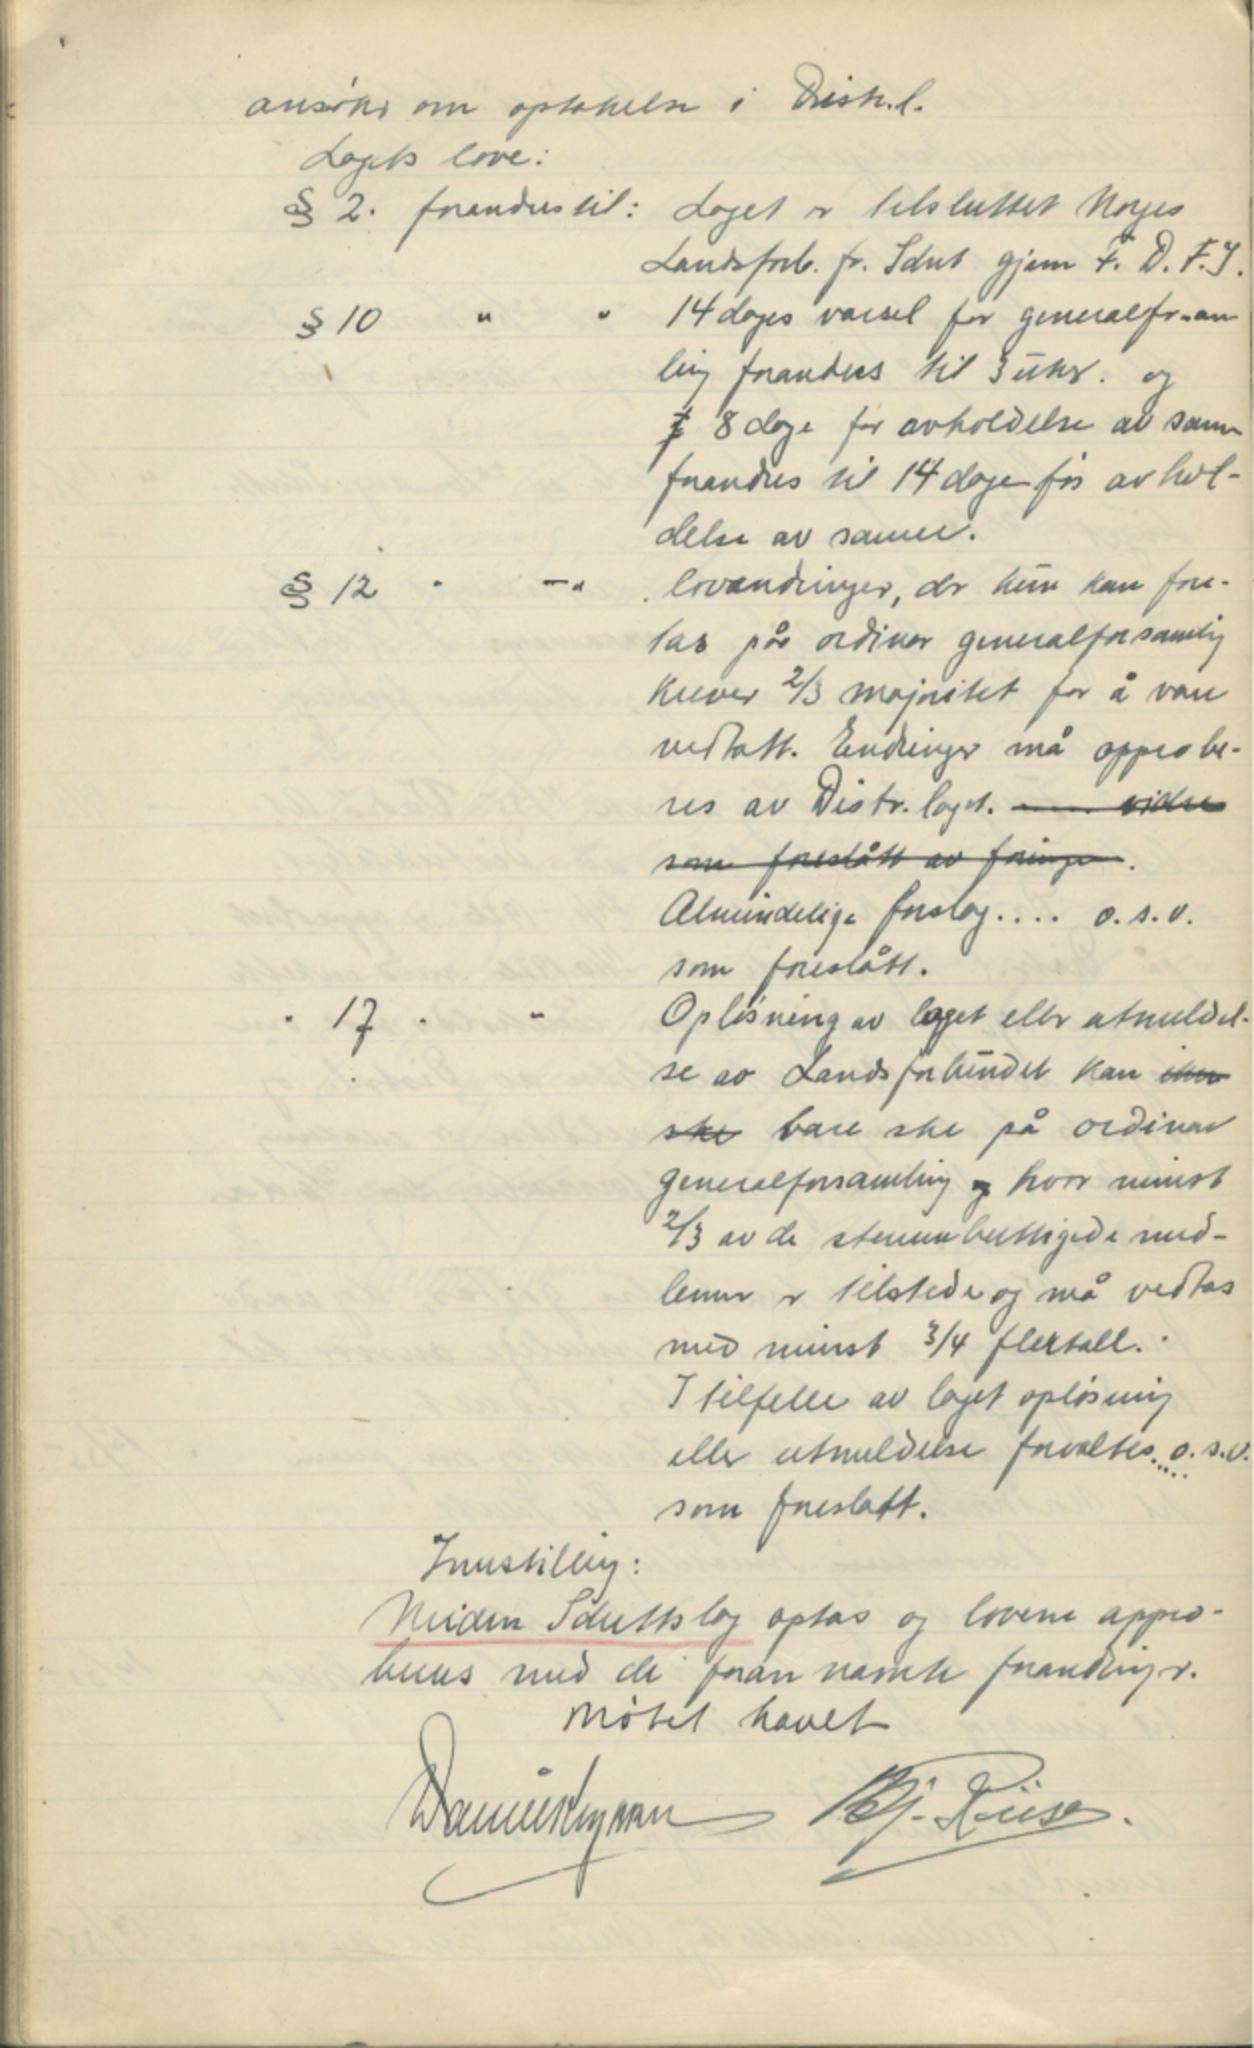 ansöker om optakelse i Distr.l.
Lagets love:
§ 2. forandres til: Laget er tilsluttet Norges
Landsforb. for Idræt gjem F. D. F. I.
§ 10 " " 14 dages varsel for generalforsam
ling forandres til 3 uker. og
8 dage før avholdelse av samme
forandres til 14 dage før avhol-
delse av samme.
§ 12 " —" lovændringer, der kun kan fore-
tas på ordinær generalforsamling
krever 2/3 majoritet for å være
vedtatt. Endringer må approbe-
res av Distr. laget. ~~vidre~~
~~som foreslått av foreningen~~.
Almindelige forslag.... o.s.v.
som foreslått.
" 17 " " Opløsning av laget eller utmeldel-
se av Landsforbundet kan
~~ske~~ bare ske på ordinær
generalforsamling hvor minst
2/3 av de stemmeberettigede med-
lemmer er tilstede og må vedtas
med minst 3/4 flertall.
I tilfelle av laget opløsning
eller utmeldelse forvaltes... o.s.v.
som foreslått.
Innstilling:
Neiden Idrettslag optas og lovene appro-
beres med de foran nævnte forandringer.
Møtet hævet
Bj. Riise.